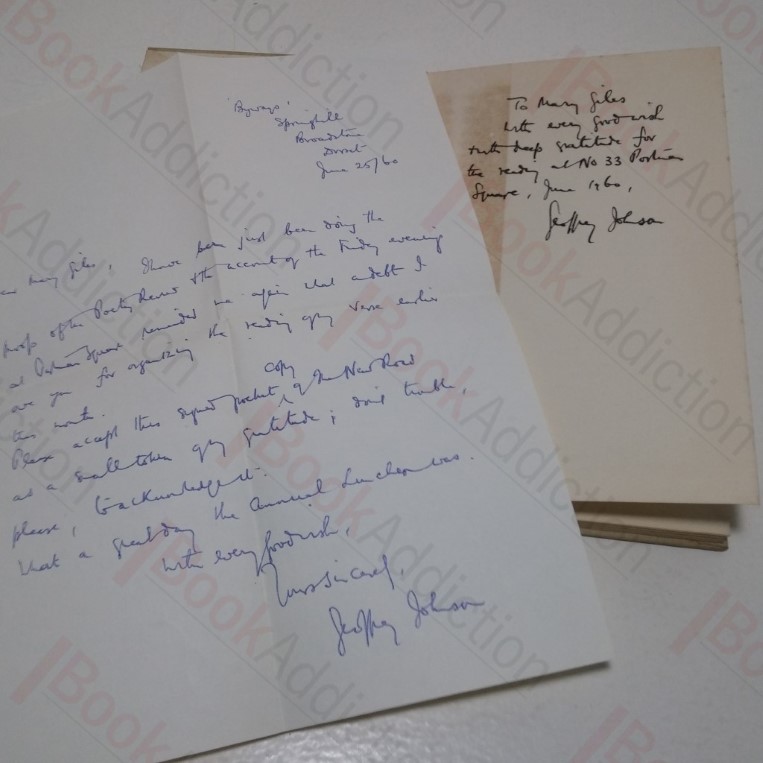 'Byways'
Springhill
Broadstone
Dorset
June 25/60
Mary Giles, I have been just been doing the
proofs of the Poetry Review & the account of the Friday evening
at Portman Square reminded me again what a debt I
owe you for organizing the reading of my verse earlier
this month.
copy
Please accept this signed pocket of The New Road
as a small token of my gratitude; don't trouble,
please, to acknowledge it.
What a great day the Annual Luncheon was.
With every good wish,
Yours sincerely,
Geoffrey Johnson
To Mary Giles
with every good wish
& with deep gratitude for
the reading at No 33 Portman
Square, June 1960,
Geoffrey Johnson
BookAddiction